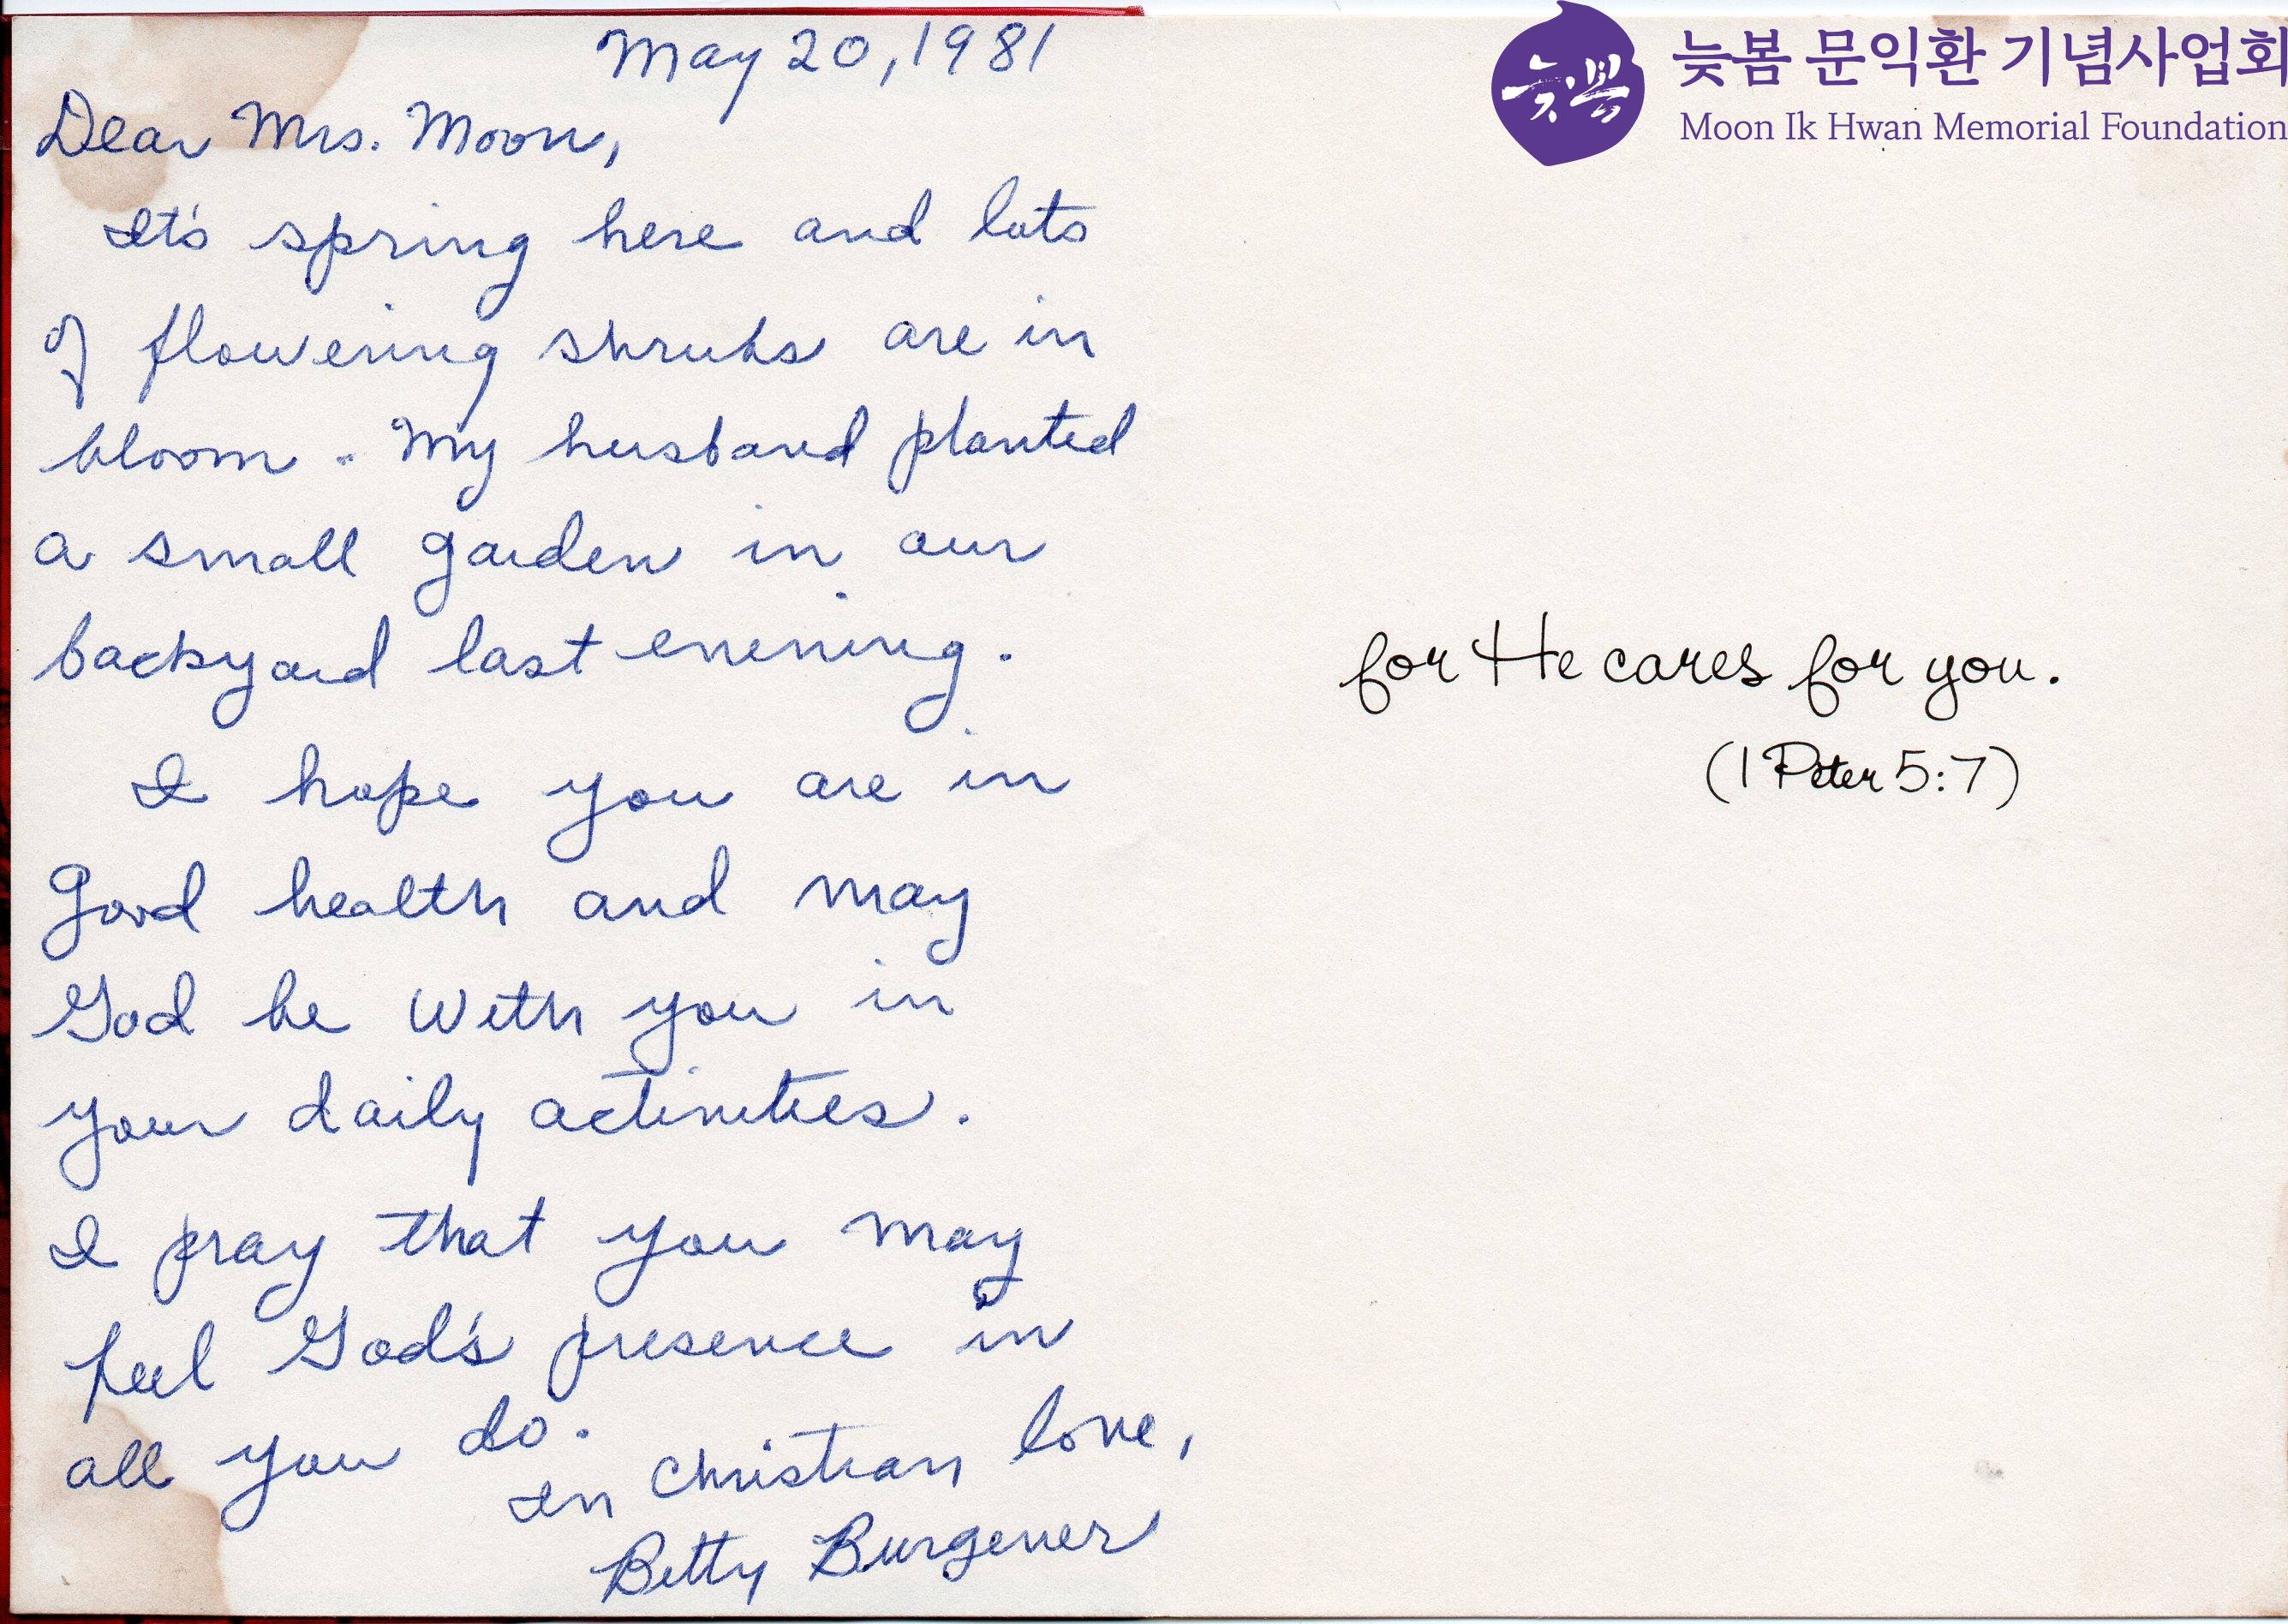 May 20, 1981
Dear Mrs. Moon,
It's spring here and lots
of flowering shrubs are in
bloom. My husband planted
a small garden in our
backyard last evening.
I hope you are in
good health and may
God be with you in
your daily activities.
I pray that you may
feel God's presence in
all you do.
In Christian love,
Betty Burgener
늦봄 문익환 기념사업회
Moon Ik Hwan Memorial Foundation
늦봄
for He cares for you.
(1 Peter 5:7)